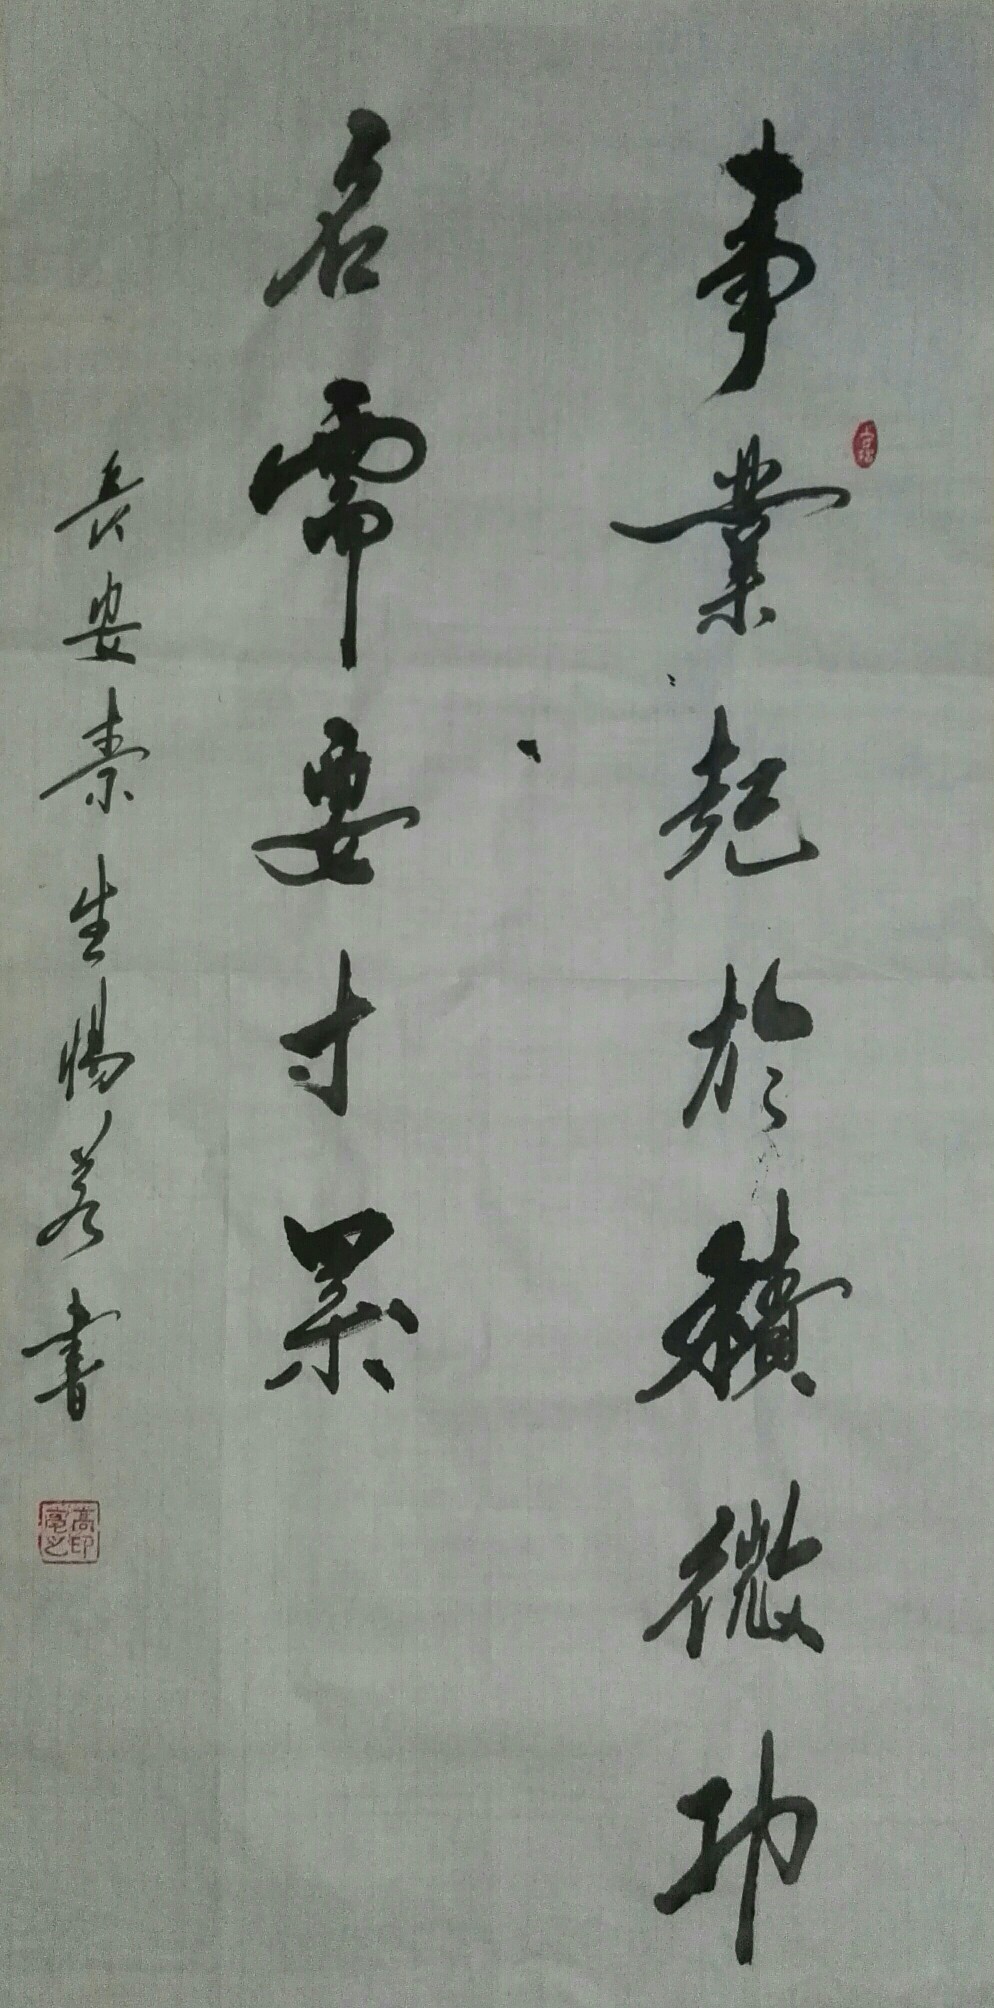 事業起於積微功
名需要寸累
長安素生惕若書
高印亮之